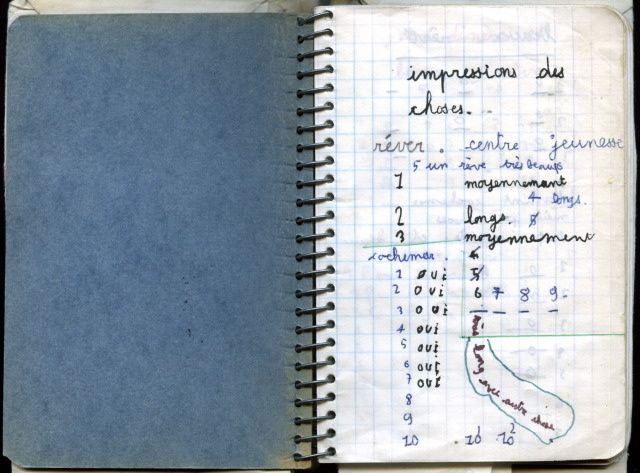 impressions des
choses..
rêver. centre jeunesse
5 un rêve très beaux
1 moyennemant
4 longs.
2 longs. 5
3 moyennement
cochemar. 4
1 oui 5
2 oui 6 7 8 9.
3 oui
4 oui
5 oui
6 oui
7 oui
8
9
10 10¹ 10²
long avec autre chose